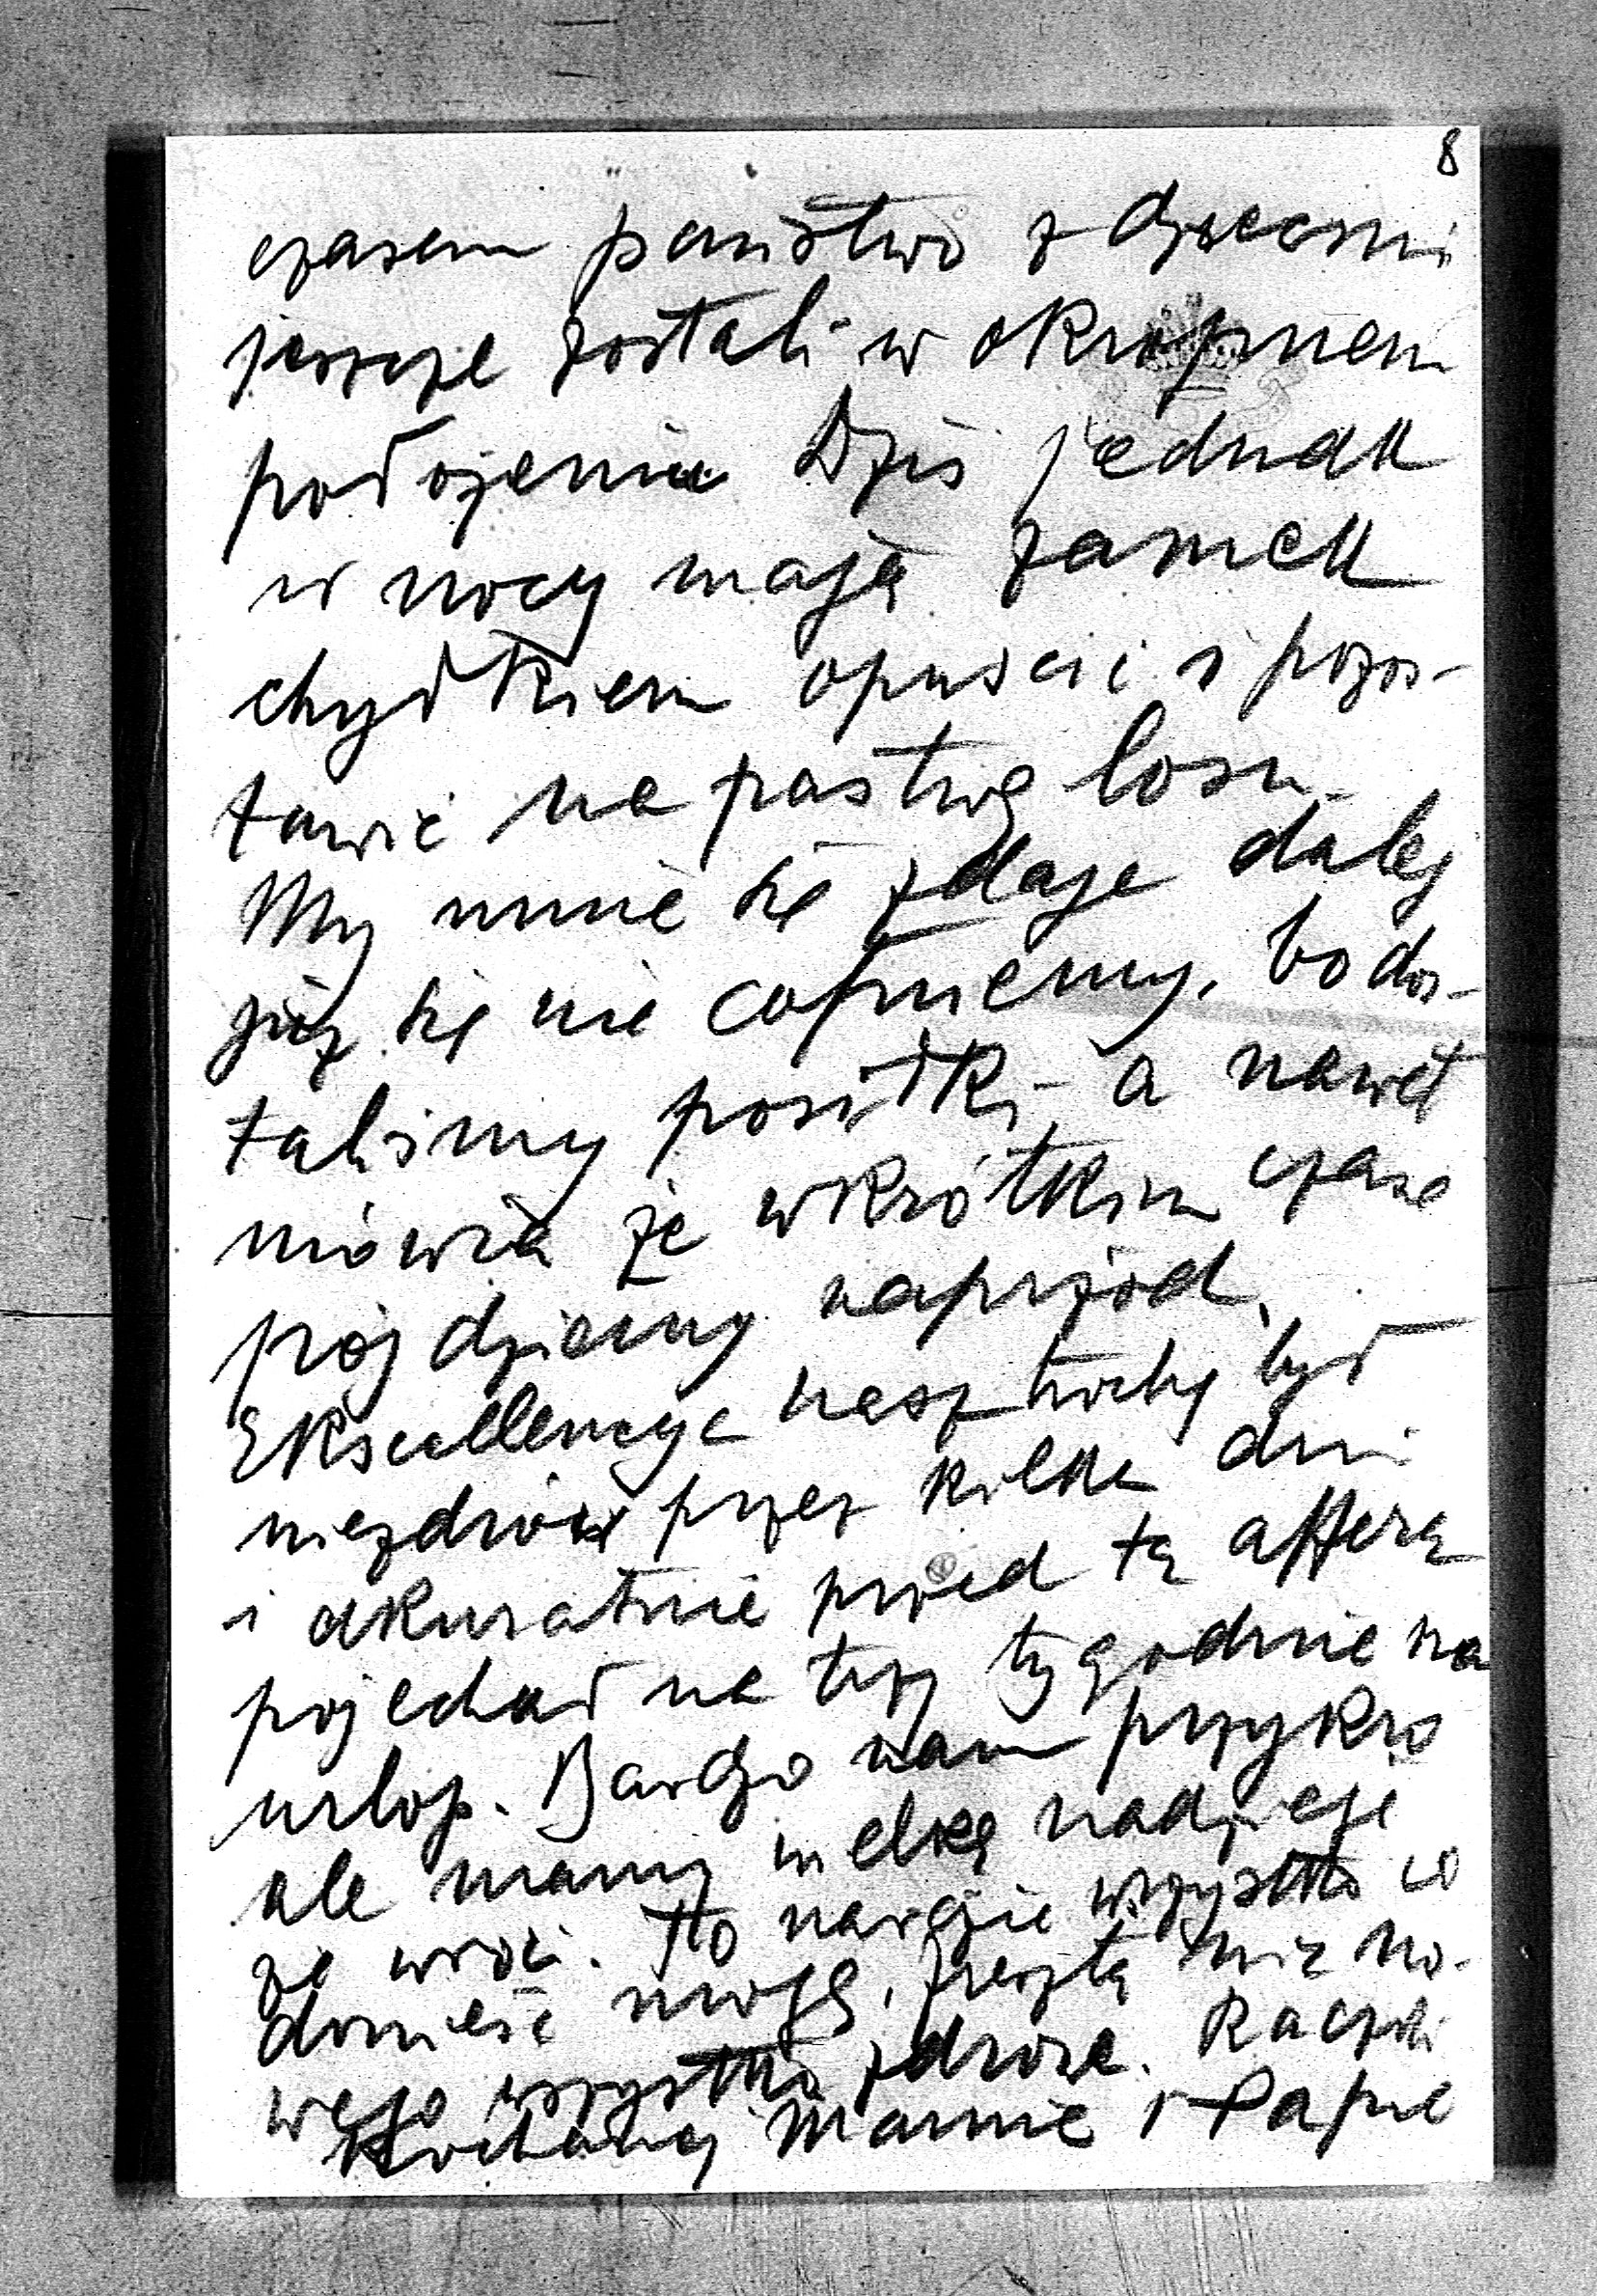 8
czasem państwo z dziećmi
jeszcze zostali w okropnem
położeniu Dziś jednak
w nocy mają zamek
chyłkiem opuścić i pozos-
tawić na pastwę losu.
My mnie się zdaje dalej
już się nie cofniemy, bo dos-
taliśmy posiłki, a nawet
mówią że w krótkim czasie
pójdziemy naprzód.
Ekscellencya nasz trochę był
niezdrów przez kilka dni
i akuratnie przed tą afferą
pojechał na trzy tygodnie na
urlop. Bardzo nam przykro
ale mamy wielką nadzieję
że wróci. To narazie wszystko co
donieść mogę, zresztą nic no-
wego wszystko zdrowe. Rączki
Kochanej Mamie i Papie